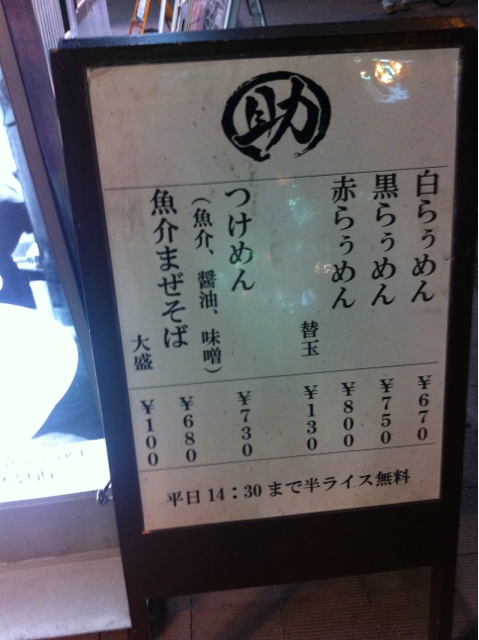 助
白らぅめん ¥670
黒らぅめん ¥750
赤らぅめん ¥800
替玉 ¥130
つけめん ¥730
（魚介、醤油、味噌）
魚介まぜそば ¥680
大盛 ¥100
平日14：30まで半ライス無料